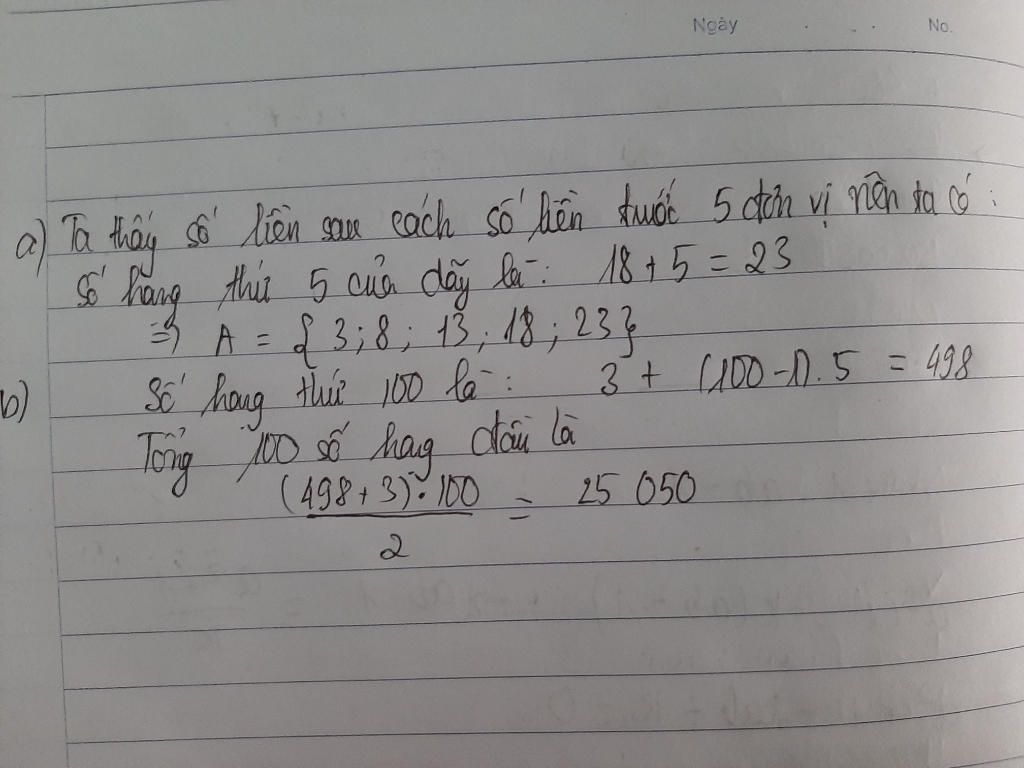 Ngày No.
a) Ta thấy số liền sau cách số liền tước 5 đơn vị nên ta có :
Số hạng thứ 5 của dãy là : 18 + 5 = 23
=> A = { 3 ; 8 ; 13 ; 18 ; 23 }
b) Số hạng thứ 100 là : 3 + (100 - 1) . 5 = 498
Tổng 100 số hạng đầu là
(498 + 3) . 100 = 25 050
2